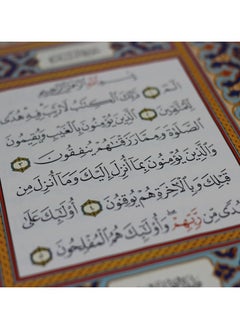 بِسْمِ ٱللَّهِ ٱلرَّحْمَٰنِ ٱلرَّحِيمِ
الٓمٓ ۝ ذَٰلِكَ ٱلْكِتَٰبُ لَا رَيْبَ فِيهِ هُدًى
لِّلْمُتَّقِينَ ۝ ٱلَّذِينَ يُؤْمِنُونَ بِٱلْغَيْبِ وَيُقِيمُونَ
ٱلصَّلَوٰةَ وَمِمَّا رَزَقْنَٰهُمْ يُنفِقُونَ ۝
وَٱلَّذِينَ يُؤْمِنُونَ بِمَآ أُنزِلَ إِلَيْكَ وَمَآ أُنزِلَ مِن
قَبْلِكَ وَبِٱلْأَخِرَةِ هُمْ يُوقِنُونَ ۝ أُو۟لَٰٓئِكَ عَلَىٰ
هُدًى مِّن رَّبِّهِمْ ۖ وَأُو۟لَٰٓئِكَ هُمُ ٱلْمُفْلِحُونَ ۝